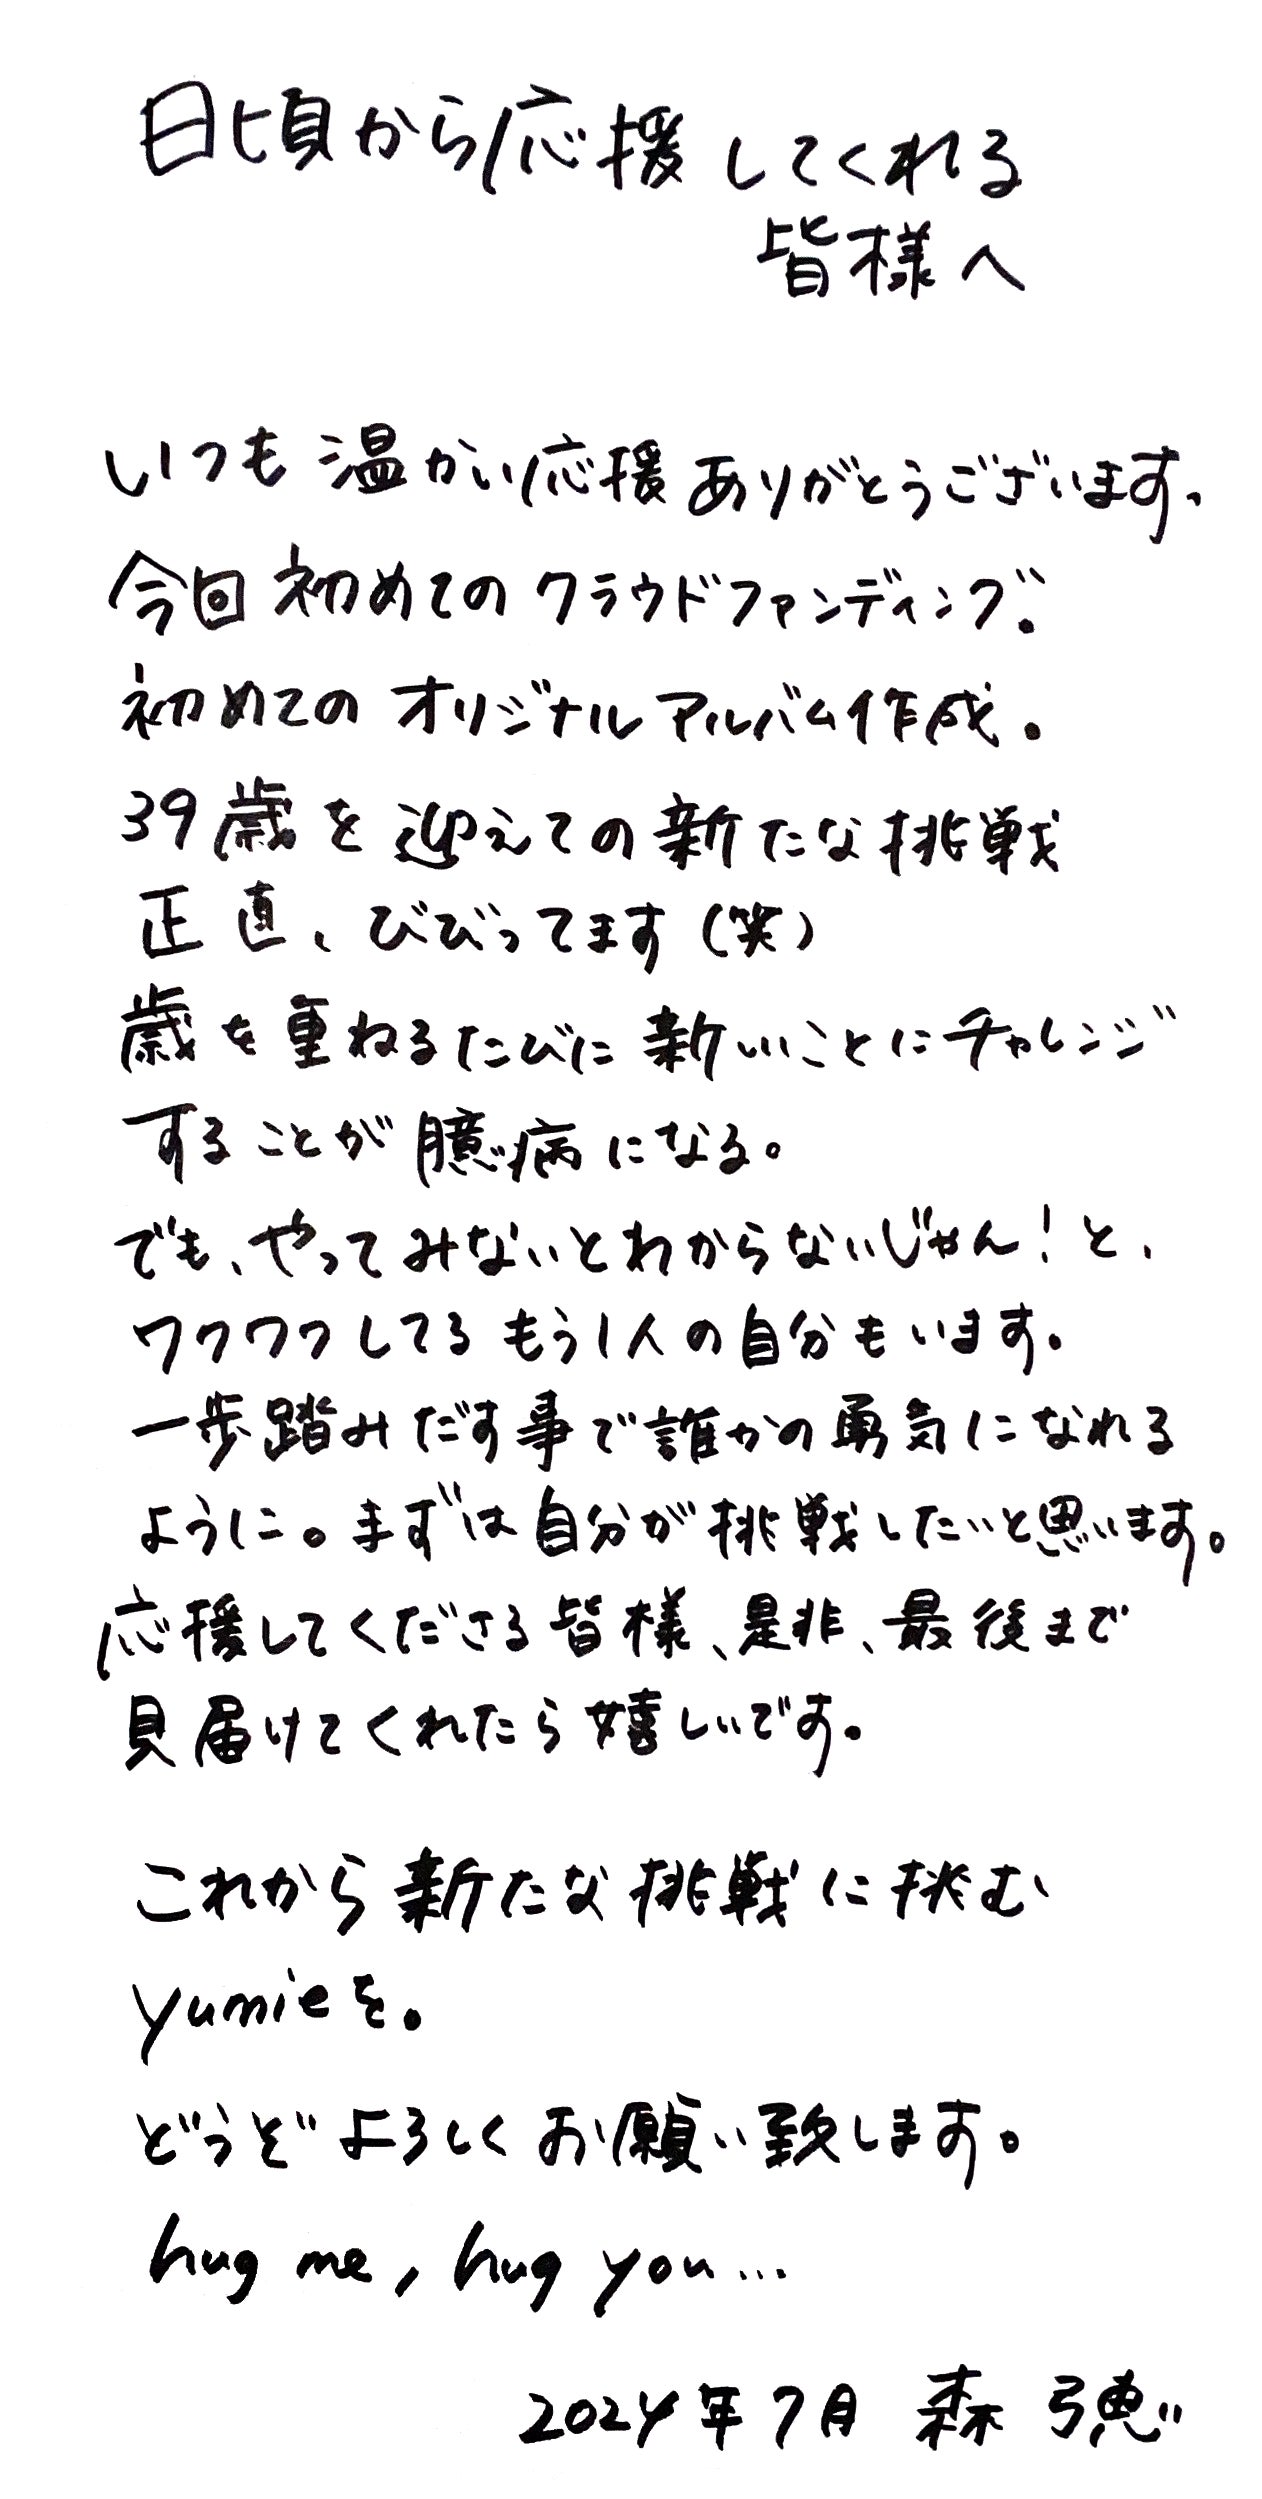 日頃から応援してくれる
皆様へ
いつも温かい応援ありがとうございます、
今回初めてのクラウドファンディング。
初めてのオリジナルアルバム作成。
39歳を迎えての新たな挑戦
正直、びびってます(笑)
歳を重ねるたびに新しいことにチャレンジ
することが臆病になる。
でも、やってみないとわからないじゃん!と、
ワクワクしてるもう1人の自分もいます。
一歩踏みだす事で誰かの勇気になれる
ように。まずは自分が挑戦したいと思います。
応援してくださる皆様、是非、最後まで
見届けてくれたら嬉しいです。
これから新たな挑戦に挑む
yumieを。
どうぞよろしくお願い致します。
hug me, hug you...
2024年7月 森 弓恵